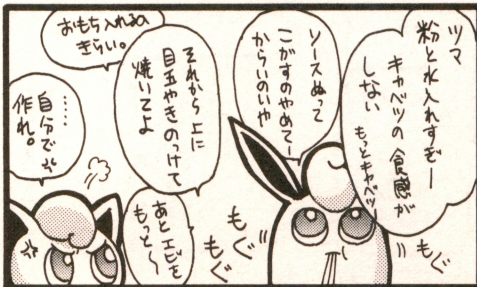 ツマ
粉と水入れすぎー
キャベツの食感が
しない
もっとキャベツ
ソースぬって
こがすのやめてー
からいのいや
それから上に
目玉やきのっけて
焼いてよ
おもち入れるの
きらい。
あとエビを
もっと〜
……
自分で
作れ。
もぐ
もぐ
もぐ